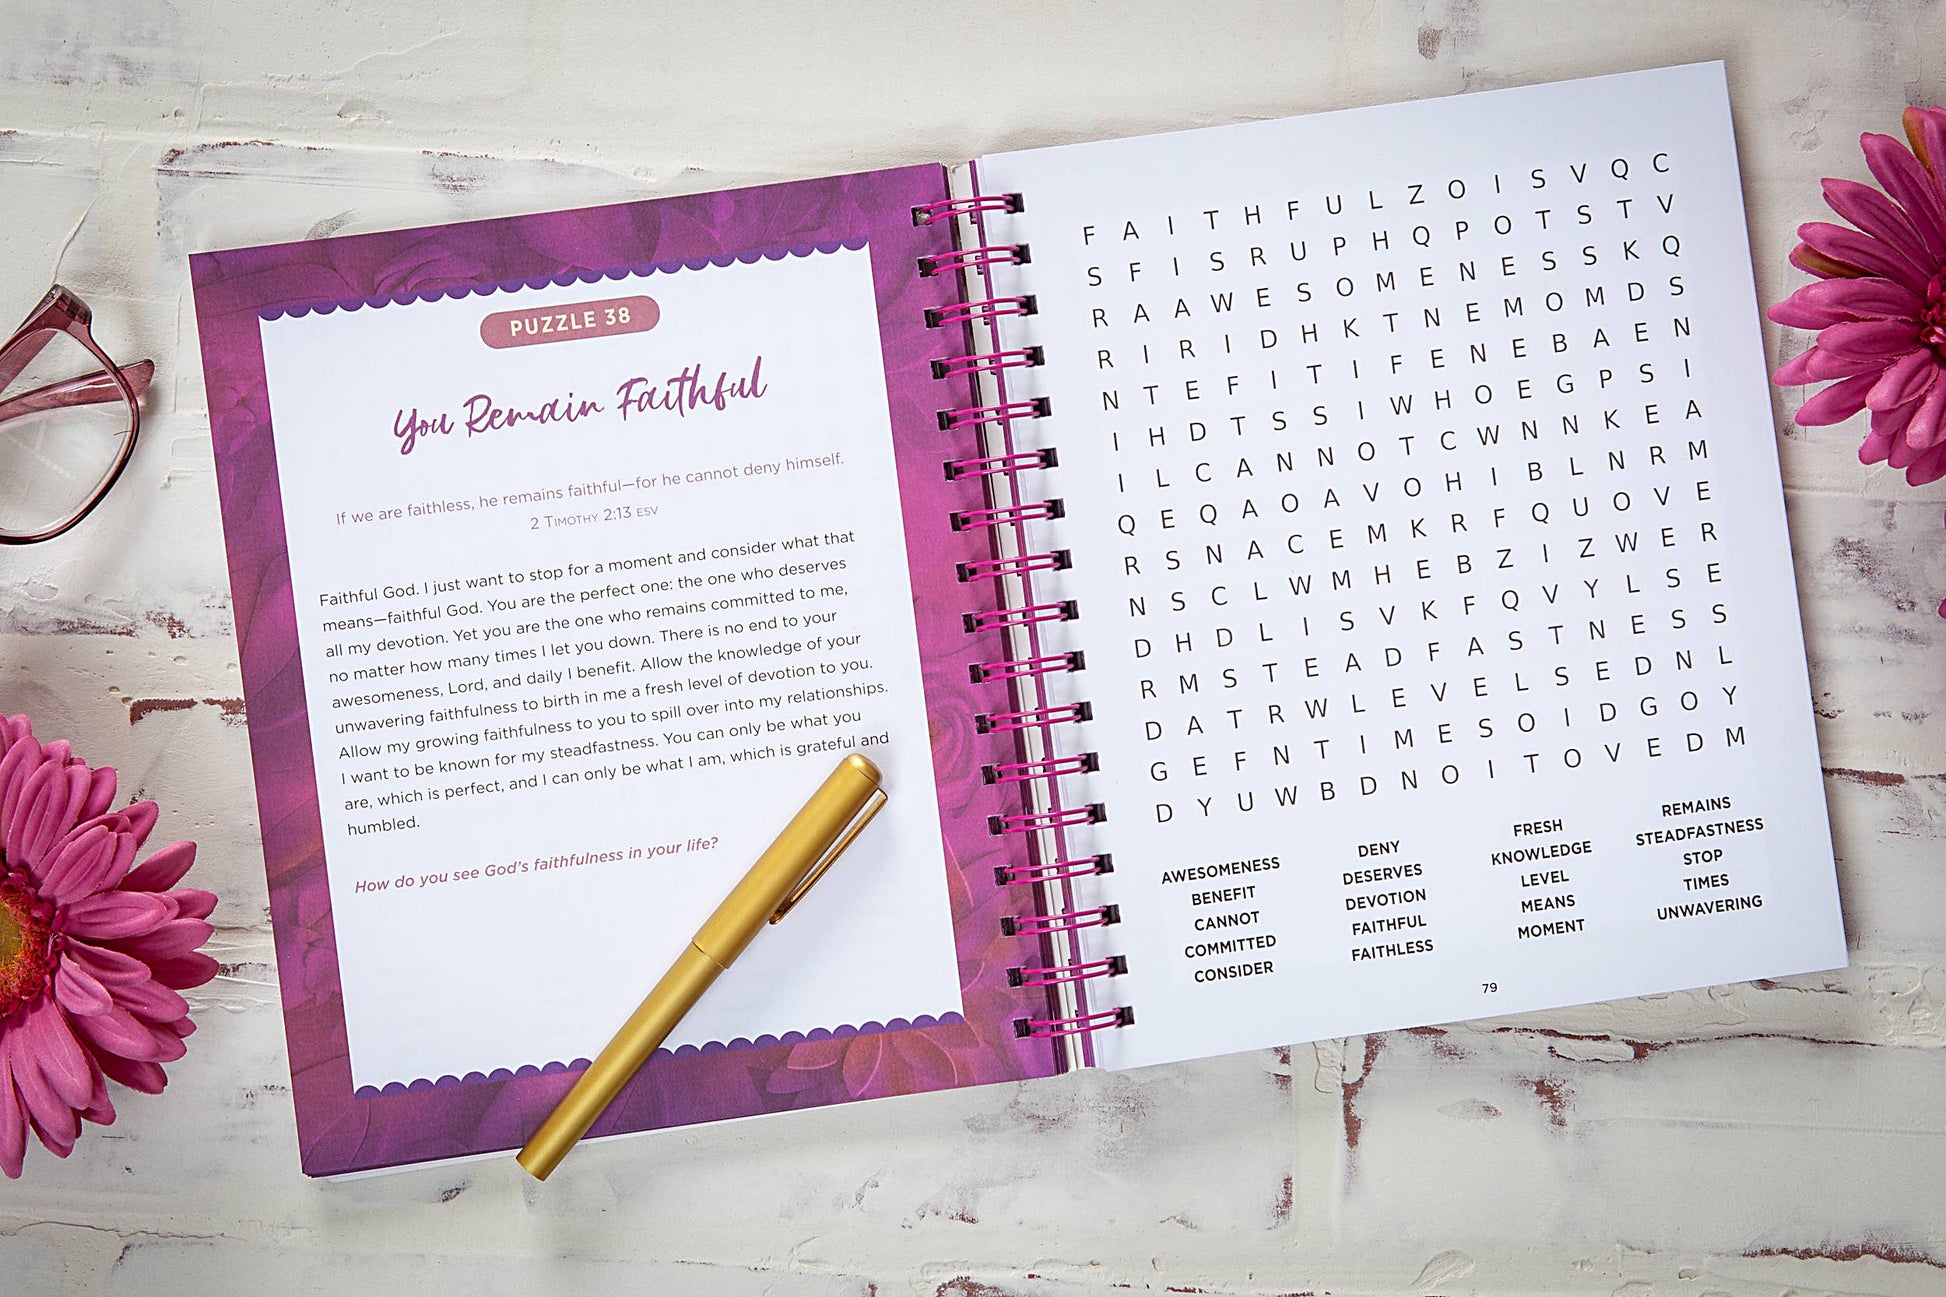 PUZZLE 38
You Remain Faithful
If we are faithless, he remains faithful—for he cannot deny himself.
2 Timothy 2:13 ESV
Faithful God. I just want to stop for a moment and consider what that
means—faithful God. You are the perfect one: the one who deserves
all my devotion. Yet you are the one who remains committed to me,
no matter how many times I let you down. There is no end to your
awesomeness, Lord, and daily I benefit. Allow the knowledge of your
unwavering faithfulness to birth in me a fresh level of devotion to you.
Allow my growing faithfulness to you to spill over into my relationships.
I want to be known for my steadfastness. You can only be what you
are, which is perfect, and I can only be what I am, which is grateful and
humbled.
How do you see God's faithfulness in your life?
F A I T H F U L Z O I S V Q C
S F I S R U P H Q P O T S T V
R A A W E S O M E N E S S K Q
R I R I D H K T N E M O M D S
N T E F I T I F E N E B A E N
I H D T S S I W H O E G P S I
I L C A N N O T C W N N K E A
Q E Q A O A V O H I B L N R M
R S N A C E M K R F Q U O V E
N S C L W M H E B Z I Z W E R
D H D L I S V K F Q V Y L S E
R M S T E A D F A S T N E S S
D A T R W L E V E L S E D N L
G E F N T I M E S O I D G O Y
D Y U W B D N O I T O V E D M
AWESOMENESS
BENEFIT
CANNOT
COMMITTED
CONSIDER
DENY
DESERVES
DEVOTION
FAITHFUL
FAITHLESS
FRESH
KNOWLEDGE
LEVEL
MEANS
MOMENT
REMAINS
STEADFASTNESS
STOP
TIMES
UNWAVERING
79